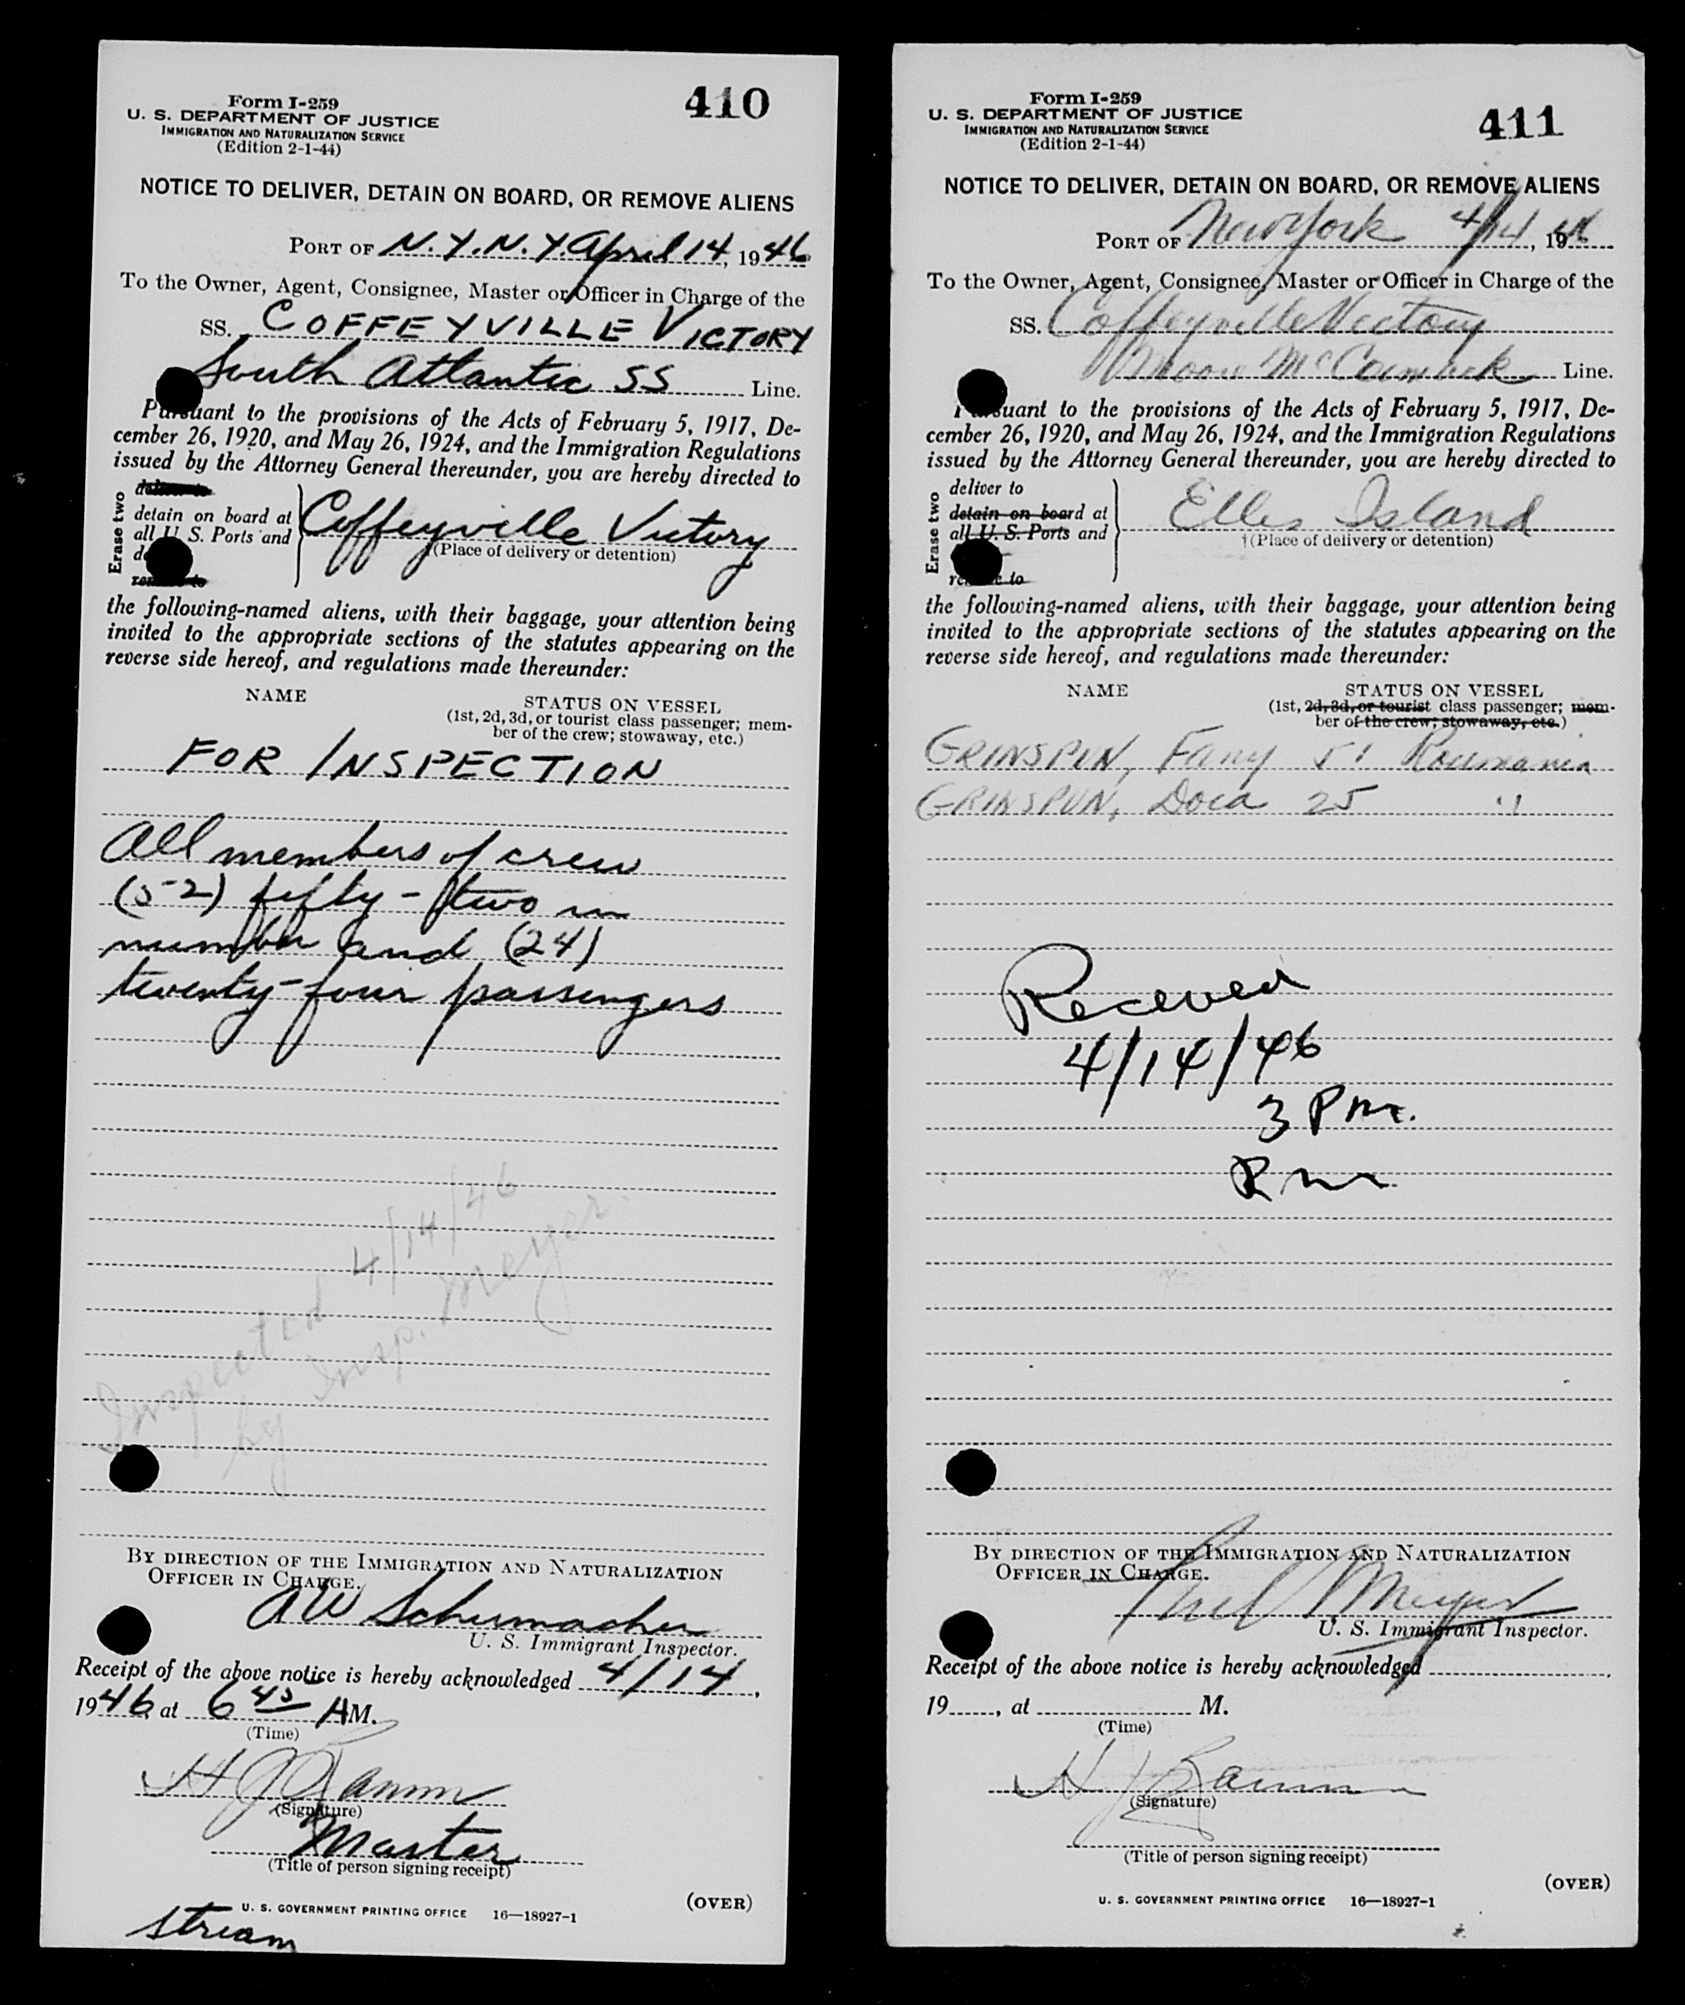 Form I-259
U. S. DEPARTMENT OF JUSTICE
IMMIGRATION AND NATURALIZATION SERVICE
(Edition 2-1-44)
410
NOTICE TO DELIVER, DETAIN ON BOARD, OR REMOVE ALIENS
PORT OF N.Y.N.Y. April 14, 1946
To the Owner, Agent, Consignee, Master or Officer in Charge of the
SS. COFFEYVILLE VICTORY
South Atlantic SS Line.
Pursuant to the provisions of the Acts of February 5, 1917, De-
cember 26, 1920, and May 26, 1924, and the Immigration Regulations
issued by the Attorney General thereunder, you are hereby directed to
Erase two
deliver to
detain on board at
all U. S. Ports and
Coffeyville Victory
(Place of delivery or detention)
remove to
the following-named aliens, with their baggage, your attention being
invited to the appropriate sections of the statutes appearing on the
reverse side hereof, and regulations made thereunder:
NAME
STATUS ON VESSEL
(1st, 2d, 3d, or tourist class passenger; mem-
ber of the crew; stowaway, etc.)
FOR INSPECTION
All members of crew
(52) fifty-two in
number and (24)
twenty-four passengers
Inspected 4/14/46
by Insp. Meyer.
BY DIRECTION OF THE IMMIGRATION AND NATURALIZATION
OFFICER IN CHARGE.
AW Schumacher
U. S. Immigrant Inspector.
Receipt of the above notice is hereby acknowledged 4/14,
1946, at 6 45 AM.
(Time)
(Signature)
Master
(Title of person signing receipt)
(OVER)
U. S. GOVERNMENT PRINTING OFFICE 16—18927-1
stream
Form I-259
U. S. DEPARTMENT OF JUSTICE
IMMIGRATION AND NATURALIZATION SERVICE
(Edition 2-1-44)
411
NOTICE TO DELIVER, DETAIN ON BOARD, OR REMOVE ALIENS
PORT OF New York 4/14, 1946
To the Owner, Agent, Consignee, Master or Officer in Charge of the
SS. Coffeyville Victory
Moore McCormack Line.
Pursuant to the provisions of the Acts of February 5, 1917, De-
cember 26, 1920, and May 26, 1924, and the Immigration Regulations
issued by the Attorney General thereunder, you are hereby directed to
Erase two
deliver to
detain on board at
all U. S. Ports and
Ellis Island
†(Place of delivery or detention)
remove to
the following-named aliens, with their baggage, your attention being
invited to the appropriate sections of the statutes appearing on the
reverse side hereof, and regulations made thereunder:
NAME
STATUS ON VESSEL
(1st, 2d, 3d, or tourist class passenger; mem-
ber of the crew; stowaway, etc.)
GRINSPUN, Fany 51 Roumania
GRINSPUN, Doca 25 "
Received
4/14/46
3 P m.
BY DIRECTION OF THE IMMIGRATION AND NATURALIZATION
OFFICER IN CHARGE.
Meyer
U. S. Immigrant Inspector.
Receipt of the above notice is hereby acknowledged
19, at M.
(Time)
(Signature)
(Title of person signing receipt)
(OVER)
U. S. GOVERNMENT PRINTING OFFICE 16—18927-1